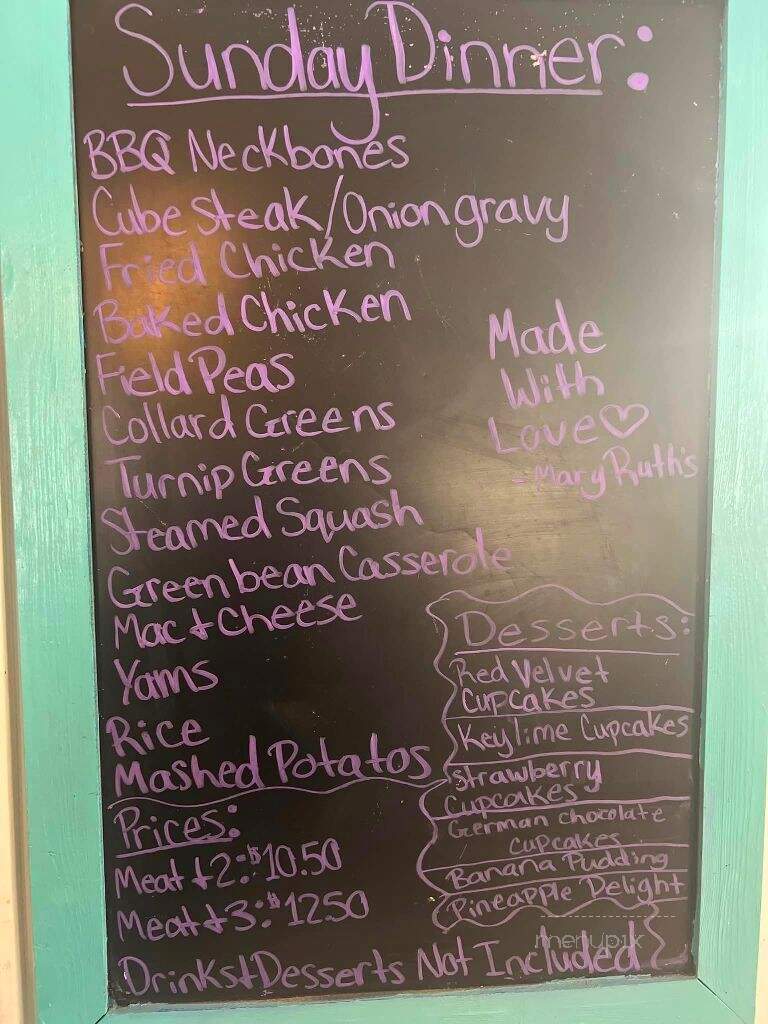 Sunday Dinner:
BBQ Neckbones
Cube steak/Onion gravy
Fried Chicken
Baked Chicken
Field Peas
Collard Greens
Turnip Greens
Steamed Squash
Green bean Casserole
Mac + Cheese
Yams
Rice
Mashed Potatos
Made
With
Love♡
- Mary Ruth's
Prices:
Meat + 2: $10.50
Meat + 3: $12.50
Desserts:
Red Velvet
Cupcakes
Keylime Cupcakes
Strawberry
Cupcakes
German chocolate
cupcakes
Banana Pudding
Pineapple Delight
Drinks + Desserts Not Included
menupix